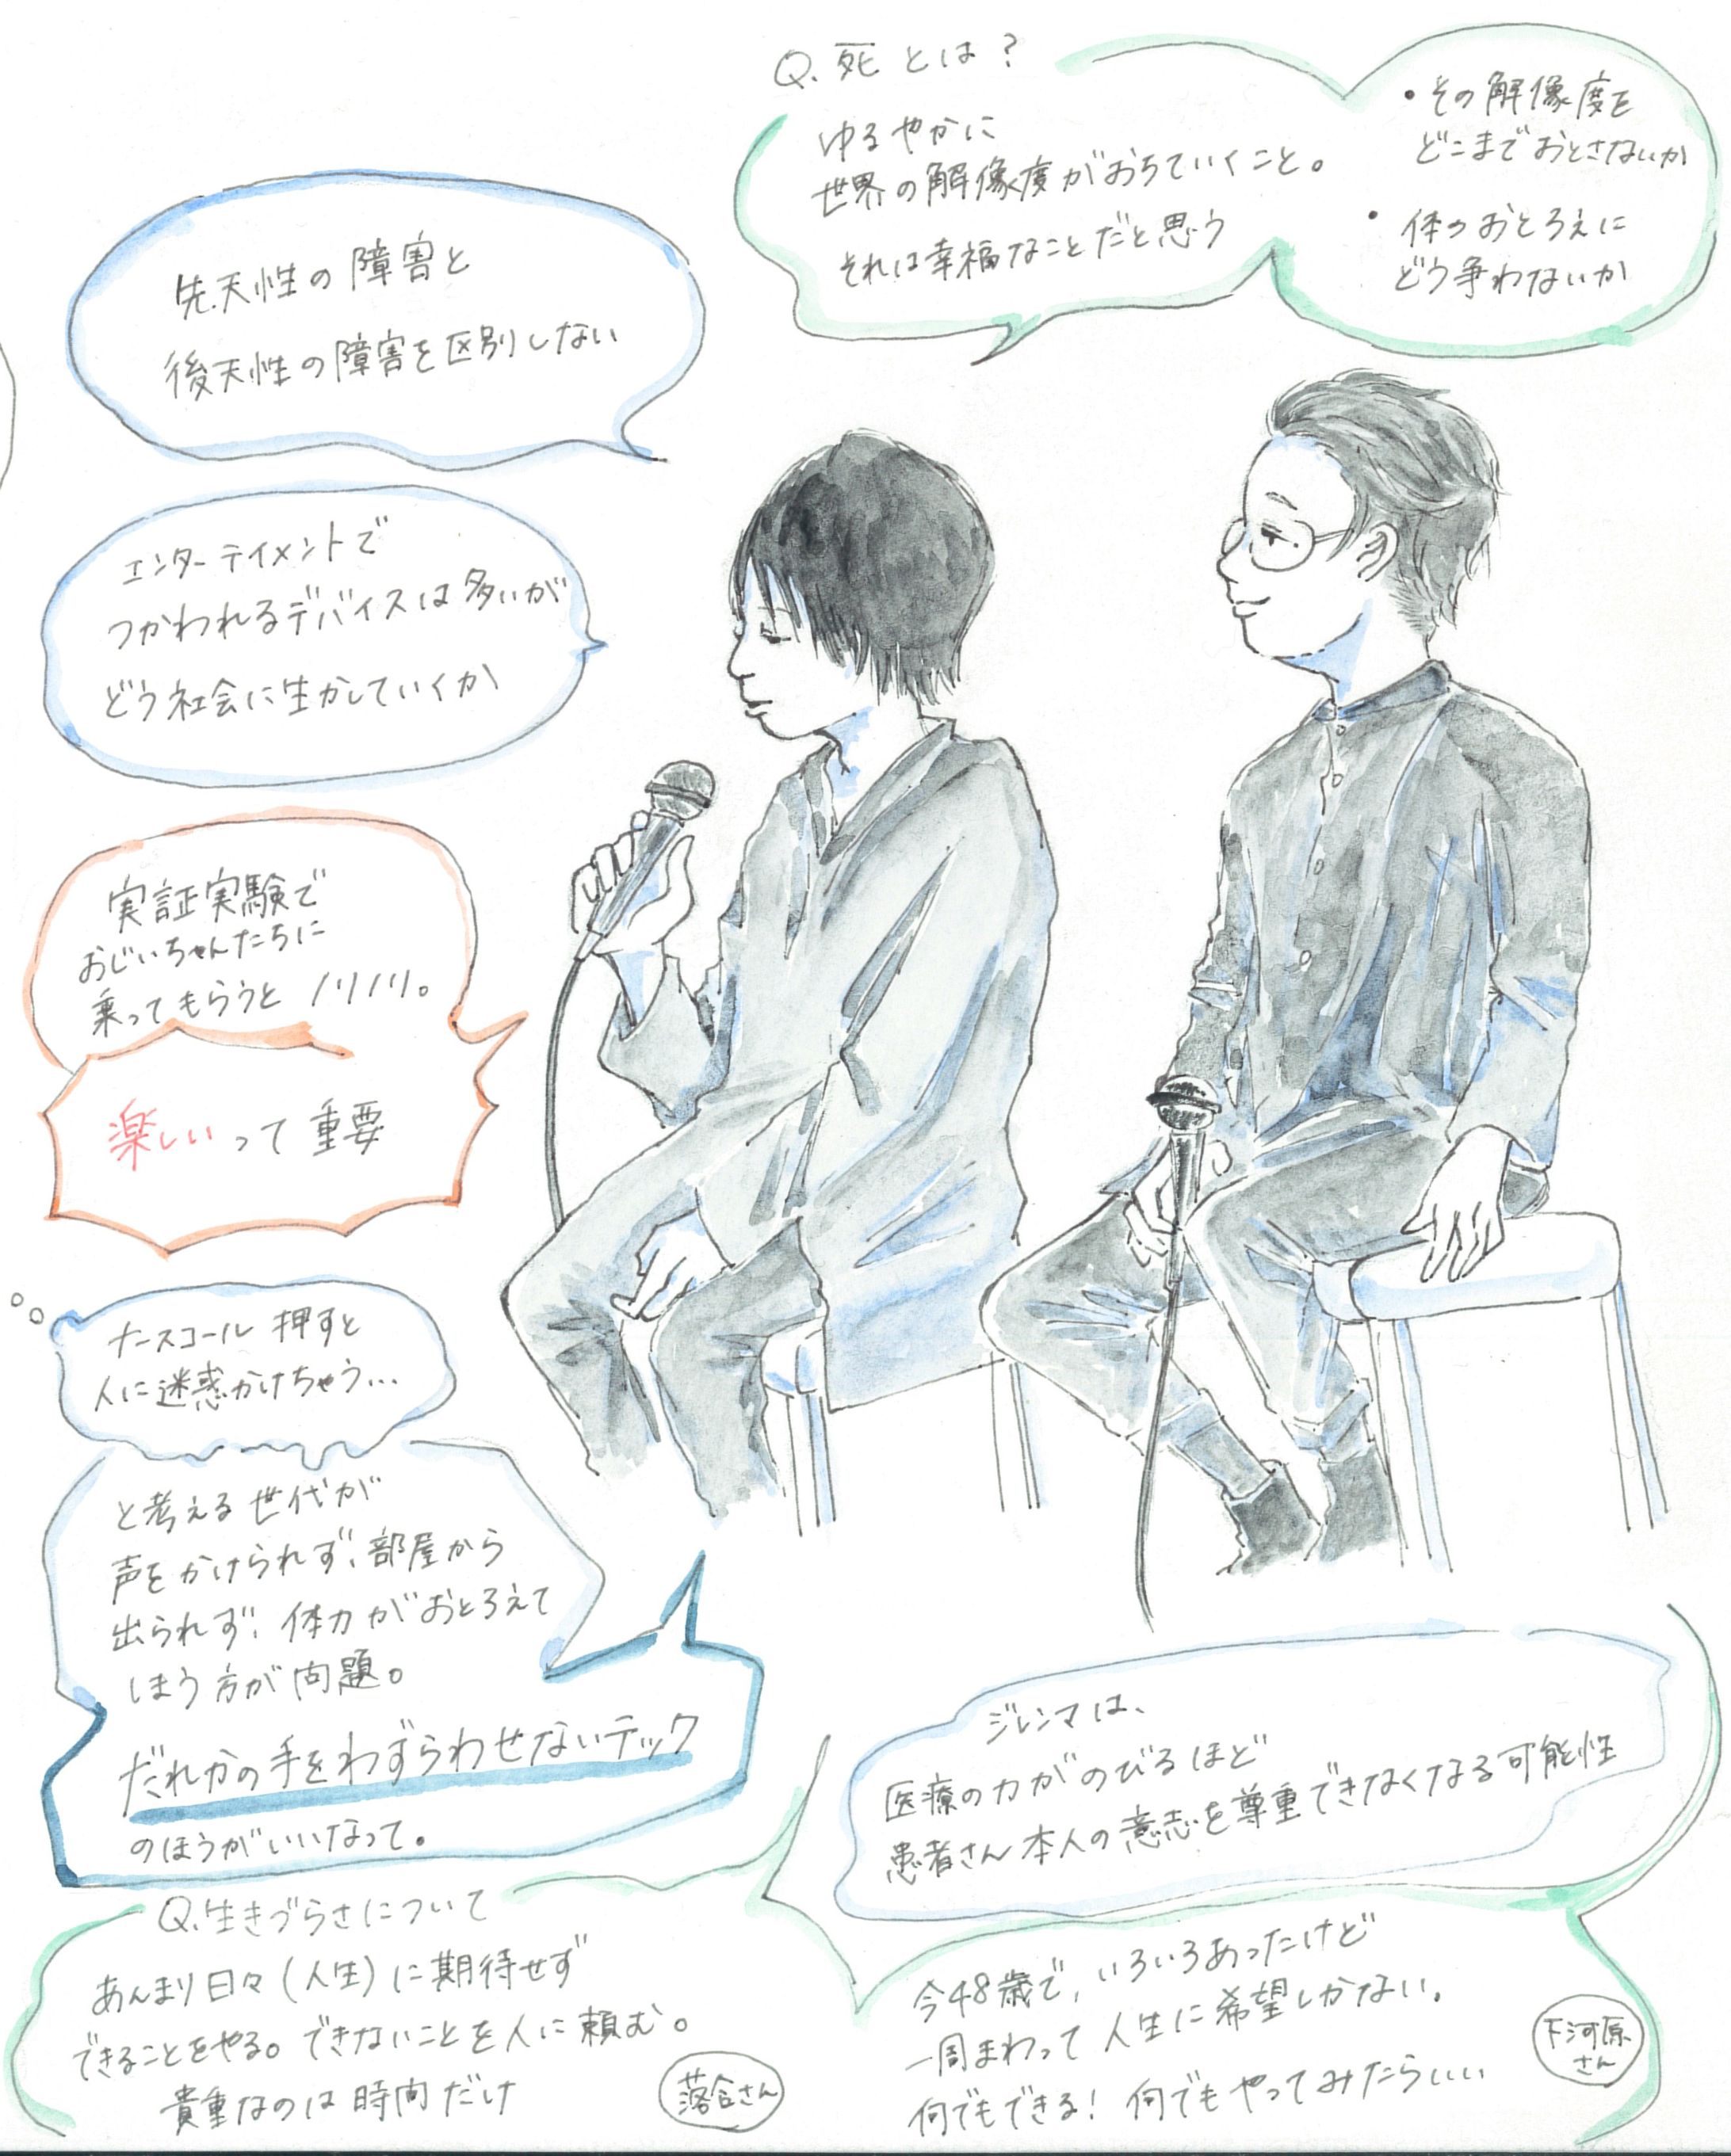 Q. 死とは?
ゆるやかに
世界の解像度がおちていくこと。
それは幸福なことだと思う
・その解像度を
どこまでおとさないか
・体のおとろえに
どう争わないか
先天性の障害と
後天性の障害を区別しない
エンターテイメントで
つかわれるデバイスは多いが
どう社会に生かしていくか
実証実験で
おじいちゃんたちに
乗ってもらうとノリノリ。
楽しいって重要
ナースコール押すと
人に迷惑かけちゃう…
と考える世代が
声をかけられず、部屋から
出られず、体力がおとろえて
しまう方が問題。
だれかの手をわずらわせないテック
のほうがいいなって。
ジレンマは、
医療の力がのびるほど
患者さん本人の意志を尊重できなくなる可能性
Q.生きづらさについて
あんまり日々(人生)に期待せず
できることをやる。できないことを人に頼む。
貴重なのは時間だけ
落合さん
今48歳で、いろいろあったけど
一周まわって人生に希望しかない。
何でもできる!何でもやってみたらいい
下河原
さん